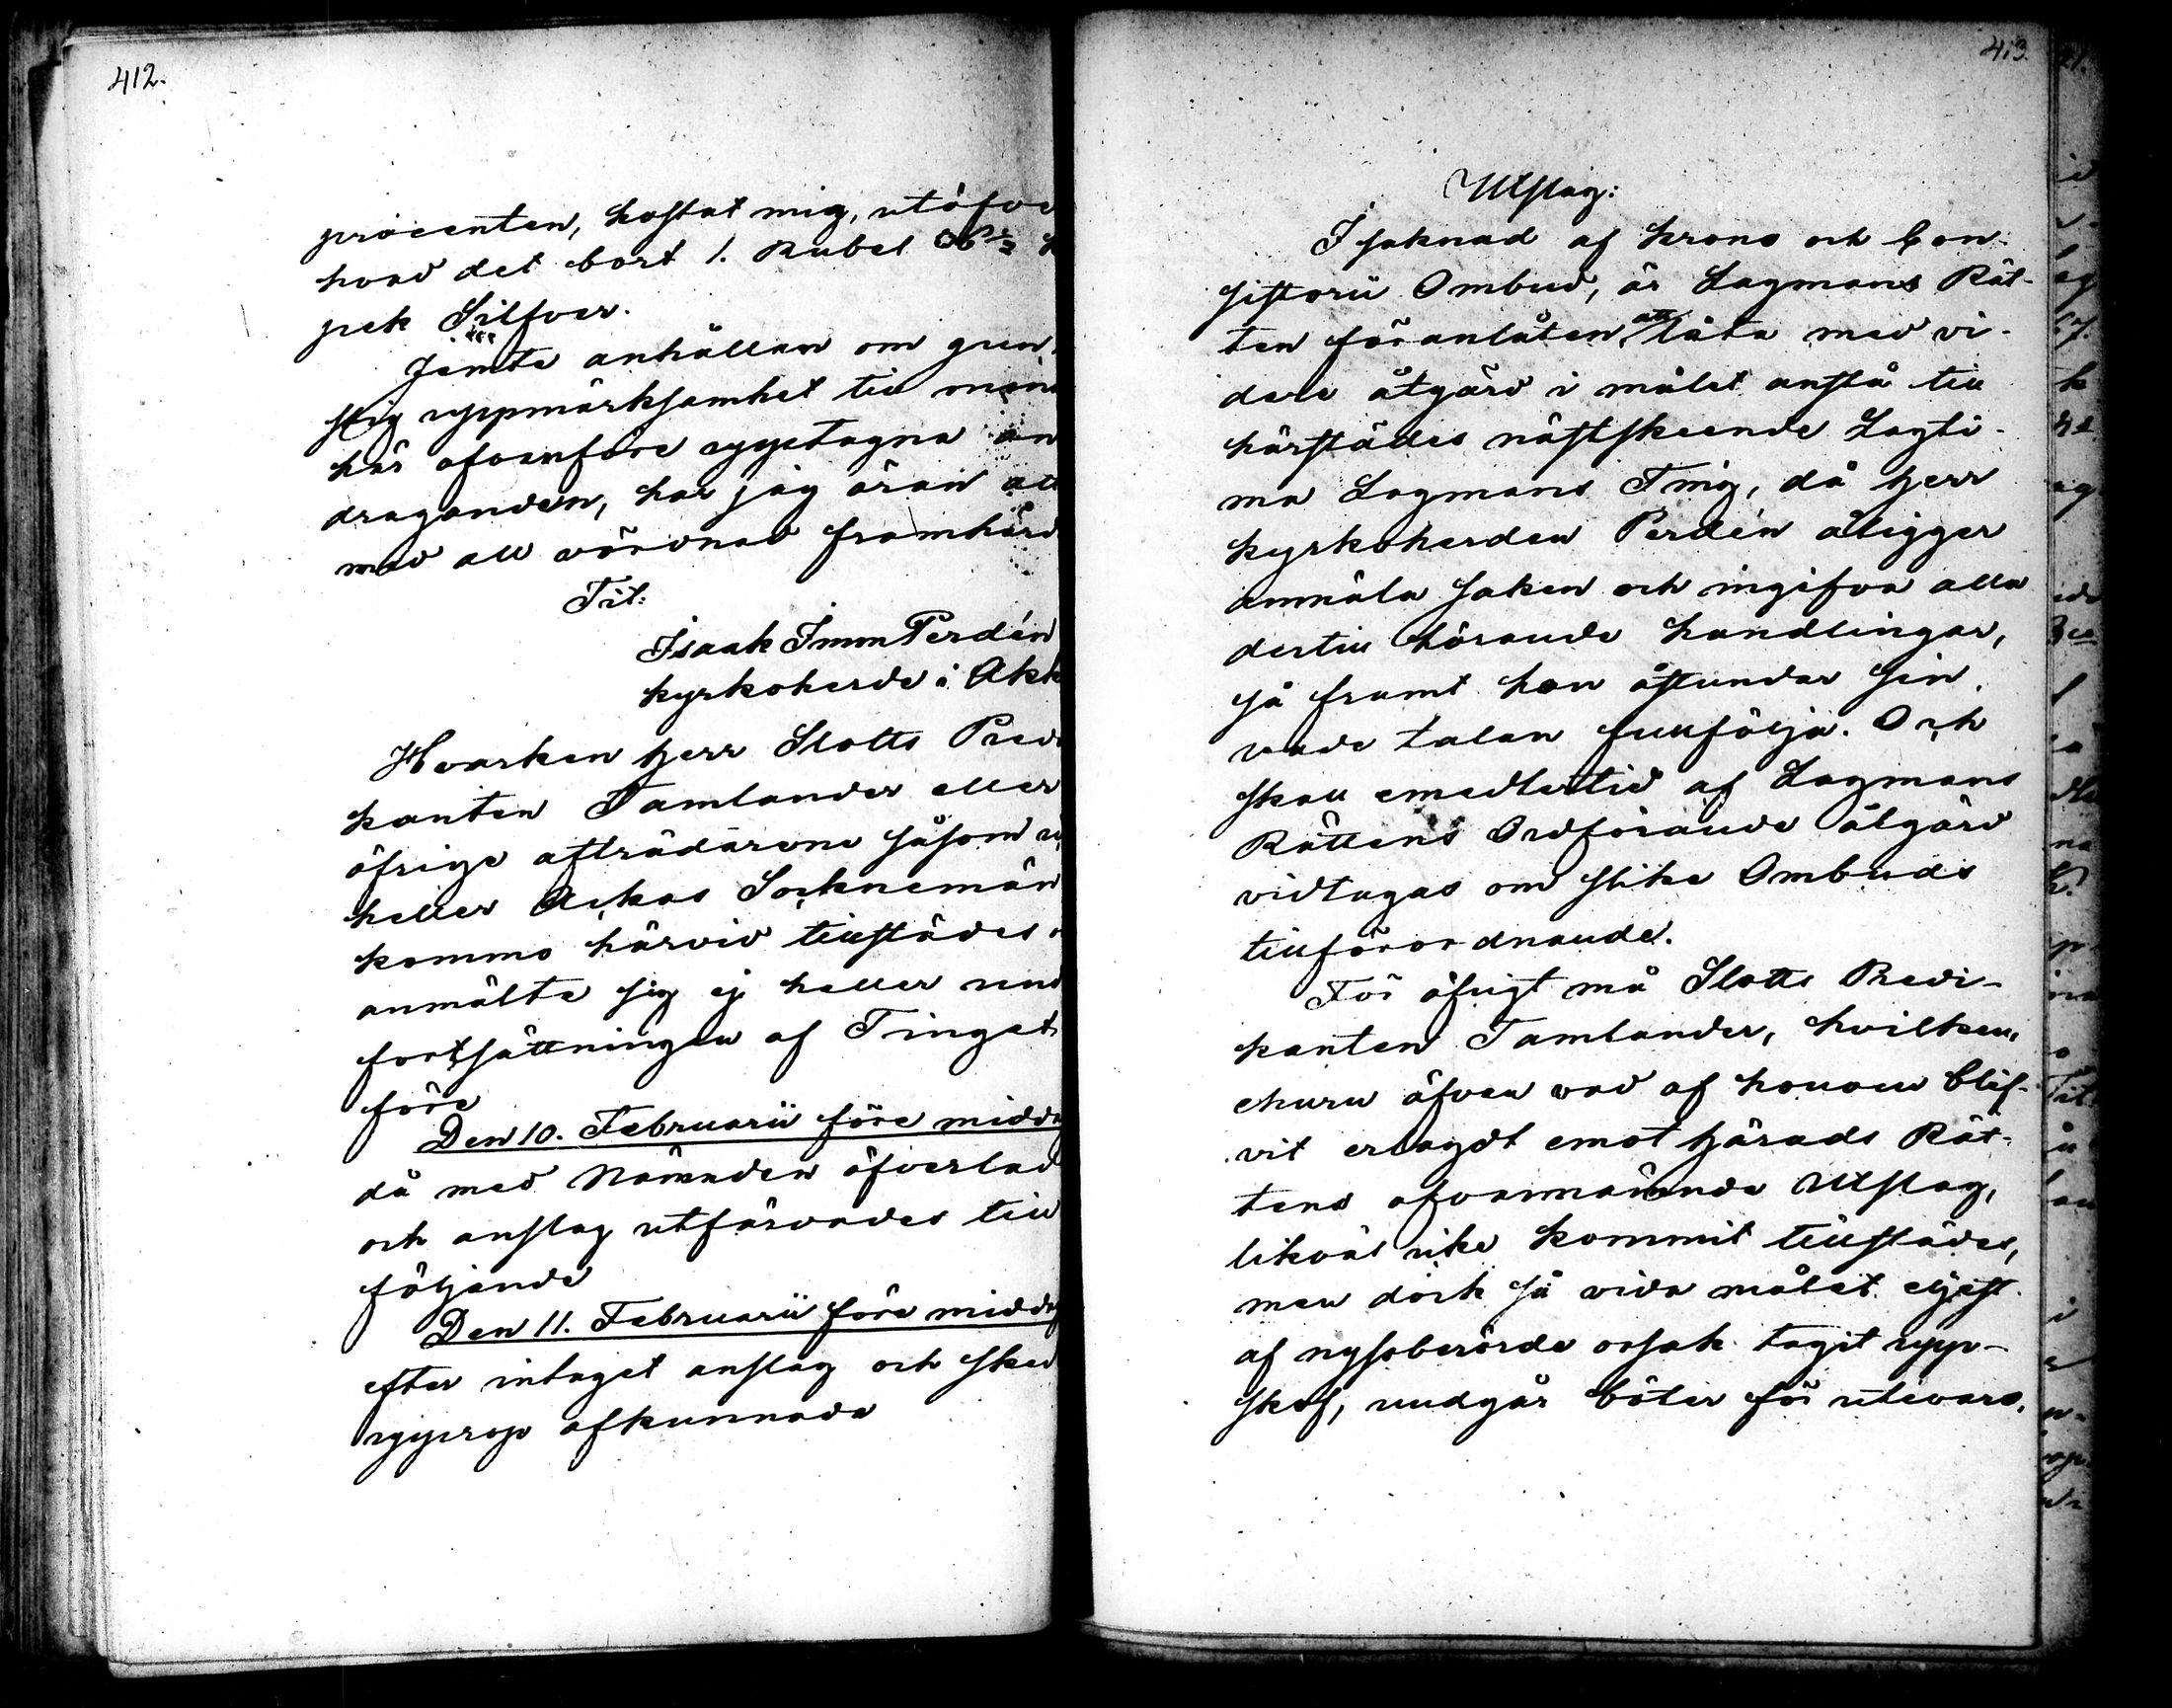 412.
procenten, kostat mig, utöfver
hvad det bort 1. Rubel
pek Silfver.
Jemte anhållan om gun-
stig uppmärksamhet till mina
här ofvanföre upptagna an
draganden, har jag äran att
med all vördnad framhärd
Tit:
Isaak Imm Perdén
kyrkoherde i Akk
Hvarken Herr Slotts Predi
kanten Tamlander eller
öfrige afträdarene såsom
heller Ackas Socknemän
kommo härvid tillstädes,
anmälte sig ej heller und
fortsättningen af Tinget
före
Den 10. Februarii före midda
då med Nämnden öfverlad
och anslag utfärdades till
följande
Den 11. Februarii före midda
efter intaget anslag och sked
upprop afkunnade
413.
Utslag:
I saknad af Krono och Con-
sistorii Ombud, är Lagmans Rät-
ten föranlåten att låta med vi-
dare åtgärd i målet anstå till
härstädes nästskeende Lagti-
ma Lagmans Ting, då Herr
kyrkoherden Perdén åligger
anmäla saken och ingifva alla
dertill hörande handlingar,
så framt han åstundar sin
vade talan fullfölja. Och
skall emedlertid af Lagmans
Rättens Ordförande åtgärd
vidtagas om slike Ombuds
tillförordnande.
För öfrigt må Slotts Predi-
kanten Tamlander, hvilken,
ehuru äfven vad af honom blif-
vit erlagdt emot Härads Rät-
tens ofvannämnde Utslag,
likväl icke kommit tillstädes,
men dock så vida målet eljest
af nyssberörde orsak tagit upp-
skof, undgår böter för utevaro.